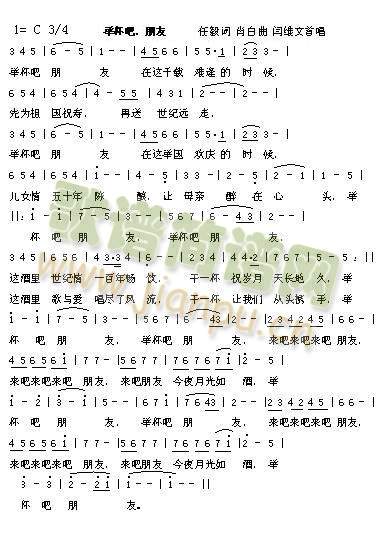 1= C 3/4 举杯吧，朋友 任毅词 肖白曲 闫维文首唱
3 4 5 | 6 - 5 | 1 - - | 4 5 6 6 | 5 5·1 | 2 3 3 - |
举杯吧 朋 友 在这千载 难逢的 时 候，
6 5 4 | 6 5 4 | 4 - 5 5 | 4 3 1 | 2 - - | 2 - - |
先为祖 国祝寿， 再送 世纪远 走，
3 4 5 | 6 - 5 | 1 - - | 4 5 6 6 | 5 5·1 | 2 3 3 - |
举杯吧 朋 友 在这举国 欢庆的 时 候，
6 5 4 | 6 5 4 | 6 5 4 | 3 - 1 | 2 - 5 | 2 - 1 | 1 - 5 |
儿女情 五十年 陈 酿，让 母亲 醉 在 心 头，举
||: 1 - 1 | 7 - 5 | 3 - - | 5 6 7 | 6 - 4 3 | 2 - - |
杯 吧 朋 友， 举杯吧 朋 友，
3 4 5 | 6 5 6 | 4 3·3 4 | 6 - - | 2 3 4 | 4 4·2 | 7 6 7 | 5 - 5 :||
这酒里 世纪情 一百年畅 饮， 干一杯 祝岁月 天长地 久，举
这酒里 歌与爱 唱尽了风 流， 干一杯 让我们 从头携 手，举
1 - 1 | 7 - 5 | 3 - - | 5 6 7 | 6 - 4 3 | 2 - - | 2 3 4 2 4 5 | 6 6 - |
杯 吧 朋 友， 举杯吧 朋 友， 来吧来吧来吧 朋友，
4 5 6 5 6 1 | 7 7 - | 5 6 7 7 | 6 7 6 7 1 | 2 - 5 |
来吧来吧来吧 朋友， 来吧朋友 今夜月光如 酒，举
1 - 2 | 3 - 1 | 5 - - | 5 6 1 | 7 6 4 3 | 2 - - | 2 3 4 2 4 5 | 6 6 - |
杯 吧 朋 友， 举杯吧 朋 友， 来吧来吧来吧 朋友，
4 5 6 5 6 1 | 7 7 - | 5 6 7 7 | 6 7 6 7 1 | 2 - 5 ||
来吧来吧来吧 朋友， 来吧朋友 今夜月光如 酒，举
3 - 3 | 2 - 2 1 | 1 - - | 1 - - ||
杯 吧 朋 友。